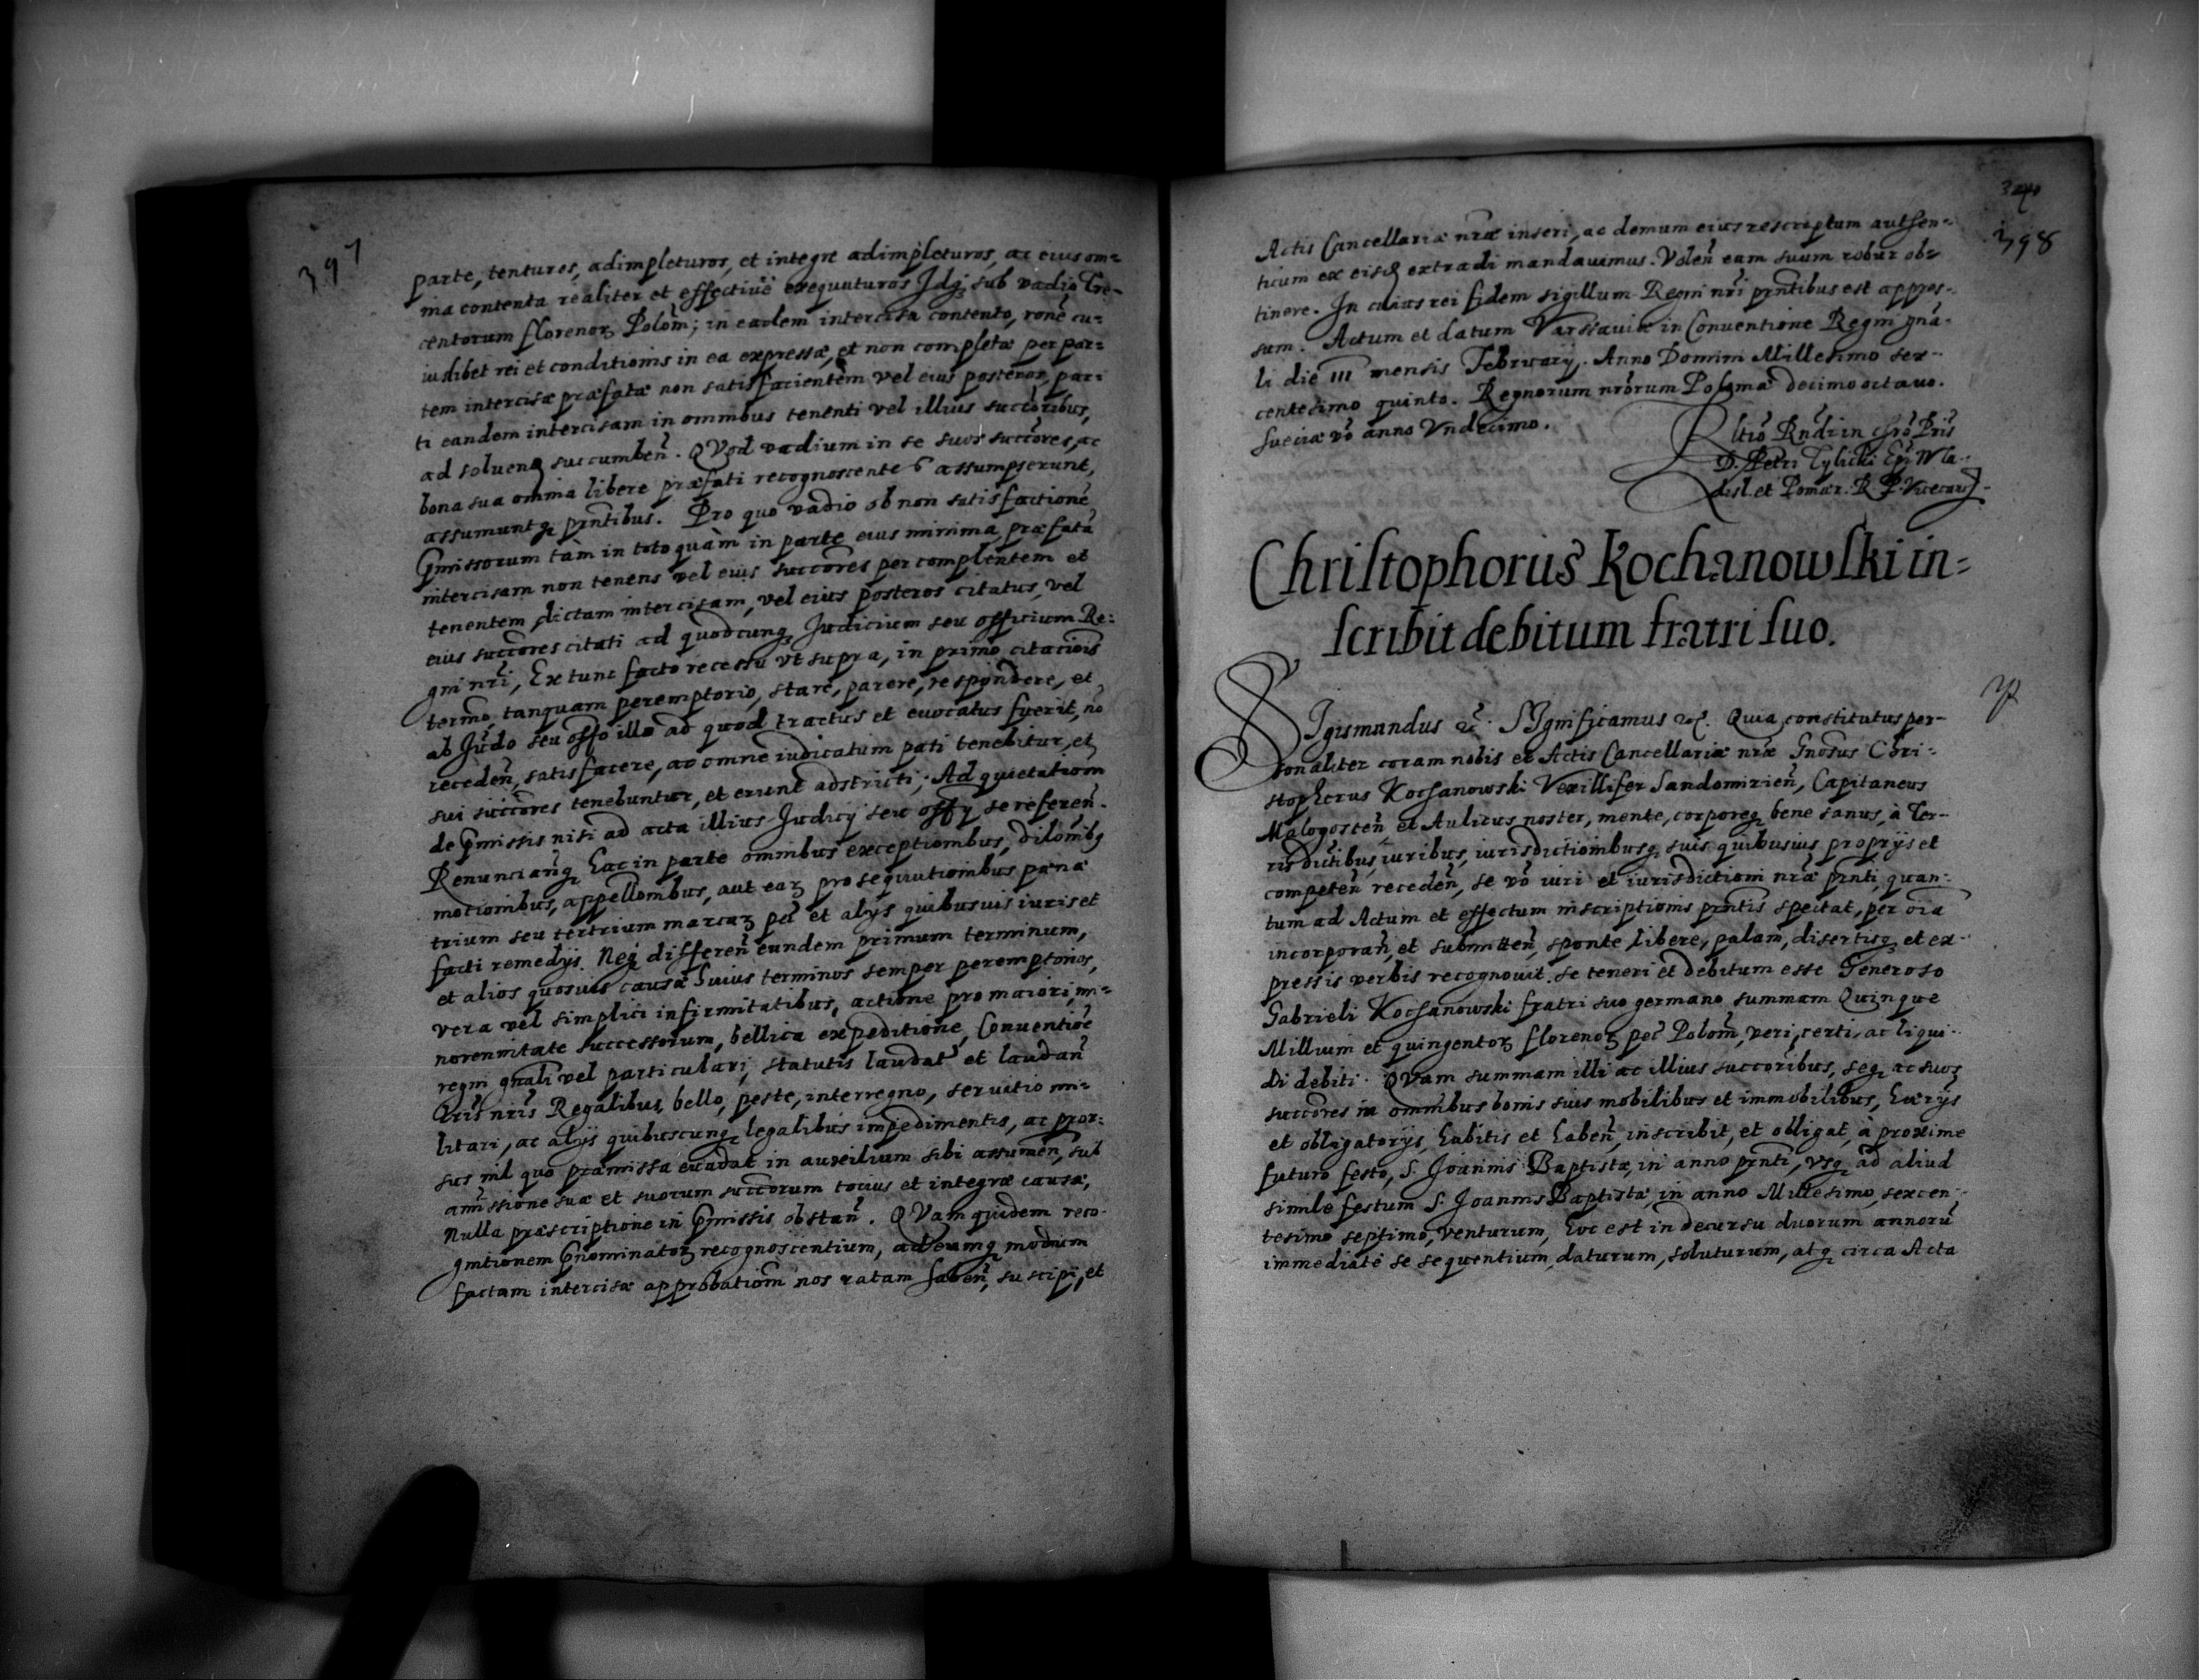 397
parte, tenturos, adimpleturos, et integre adimpleturos, ac eius om=
nia contenta realiter et effectiue exequuturos Idq; sub vadio Tre=
centorum florenoꝝ Polon̄; in eadem intercisa contento, rōne cu=
iuslibet rei et conditionis in ea expressæ, et non completæ per par=
tem intercisæ præfatæ non satisfacientem vel eius posteros, par=
ti eandem intercisam in omnibus tenenti vel illius succōribus,
ad soluend succumben̄. QVod vadium in se suos succōres, ac
bona sua omnia libere præfati recognoscentes assumpserunt,
assumuntq; prn̄tibus. Pro quo vadio ob non satisfactionē
p̄missorum tàm in toto quàm in parte eius minima, præfatā
intercisam non tenens vel eius succōres per complentem et
tenentem dictam intercisam, vel eius posteros citatus, vel
eius succōres citati ad quodcunq; Iudicium seu officium Re=
gni nr̄i, Ex tunc facto recessu vt supra, in primo citacio͞is
termo, tanquam peremptorio, stare, parere, respondere, et
ab Iūdo seu off̄o illo ad quod tractus et euocatus fuerit, nō
receden̄, satisfacere, ac omne iudicatum pati tenebitur, et
sui succōres tenebuntur, et erunt adstricti; Ad quietationem
de p̄missis nisi ad acta illius Iudicij seu offy se referen̄.
Renuncianq; hac in parte omnibus exceptionibus, dilōnibꝫ
motionibus, appellōnibus, aut eaꝝ prosequutionibus pænæ
trium seu tertrium marcaꝝ pec̄ et alijs quibusuis iuris et
facti remedijs. Neq; differen̄ eundem primum terminum,
et alios quosuis causæ huius terminos semper peremptorios,
vera vel simplici infirmitatibus, actione pro maiori, mi=
norennitate successorum, bellica expeditione, Conuentiōe
regni gn̄ali vel particulari, statutis laudat̄ et laudan̄
Lr̄is nr̄is Regalibus, bello, peste, interregno, seruitio mi=
litari, ac alijs quibuscunq; legalibus impedimentis, ac pror=
sus nil quo præmissa euadat in auxilium sibi assumen̄, sub
amissione suæ et suorum succōrum tocius et integræ causæ,
Nulla præscriptione in p̄missis obstan̄. QVam quidem reco=
gnitionem p̄nominatoꝝ recognoscentium, ad eumq; modum
factam intercisæ approbatiom nos ratam haben̄, suscipi, et
398
Actis Cancellariæ nr̄æ inseri, ac demum eius rescriptum authen=
ticum ex eisd extradi mandauimus. Volen̄ eam suum robur ob=
tinere. In cuius rei fidem sigillum Regni nr̄i prn̄tibus est appres=
sum. Actum et datum Varssauiæ in Conuentione Regni gn̄a=
li die III mensis Februarij. Anno Domini Millesimo sex=
centesimo quinto. Regnorum nrōrum Poloniæ decimo octauo.
Sueciæ vō anno Vndecimo.
Rltiō Rn̄di in chrō Pr̄is
D. Petri Tylicki Epi Wla=
disl. et Pomer. R. P. Vicecan̄
Christophorus Kochanowski in=
scribit debitum fratri suo.
SIgismundus &c. SIgnificamus &c. Quia constitutus per=
sonaliter coram nobis et Actis Cancellariæ nr̄æ Gnōsus Chri=
stophorus Kochanowski Vexillifer Sandomirien̄, Capitaneus
Malogosten̄ et Aulicus noster, mente, corporeq; bene sanus, à Ter=
ris dictibus, iuribus, iurisdictionibusq; suis quibusuis proprijs et
competen̄ receden̄, se vō iuri et iurisdictioni nr̄æ prn̄ti, quan=
tum ad Actum et effectum inscriptionis prn̄tis spectat, per oīa
incorporan̄, et submitten̄, sponte libere, palam, disertisq; et ex=
pressis verbis recognouit. se teneri et debitum esse Generoso
Gabrieli Kochanowski fratri suo germano summam Quinque
Millium et quingentoꝝ florenoꝝ pec̄ Polon̄, veri, certi, ac liqui=
di debiti. QVam summam illi ac illius succōribus, seq; ac suos
succōres in omnibus bonis suis mobilibus et immobilibus, hærijs
et obligatorijs, habitis et haben̄, inscribit, et obligat, à proxime
futuro festo, S. Joannis Baptistæ, in anno prn̄ti, vsq; ad aliud
simile festum S. Joannis Baptistæ, in anno Millesimo, sexcen=
tesimo septimo, venturum, hoc est in decursu duorum annorū
immediatè se sequentium, daturum, soluturum, atq; circa Acta